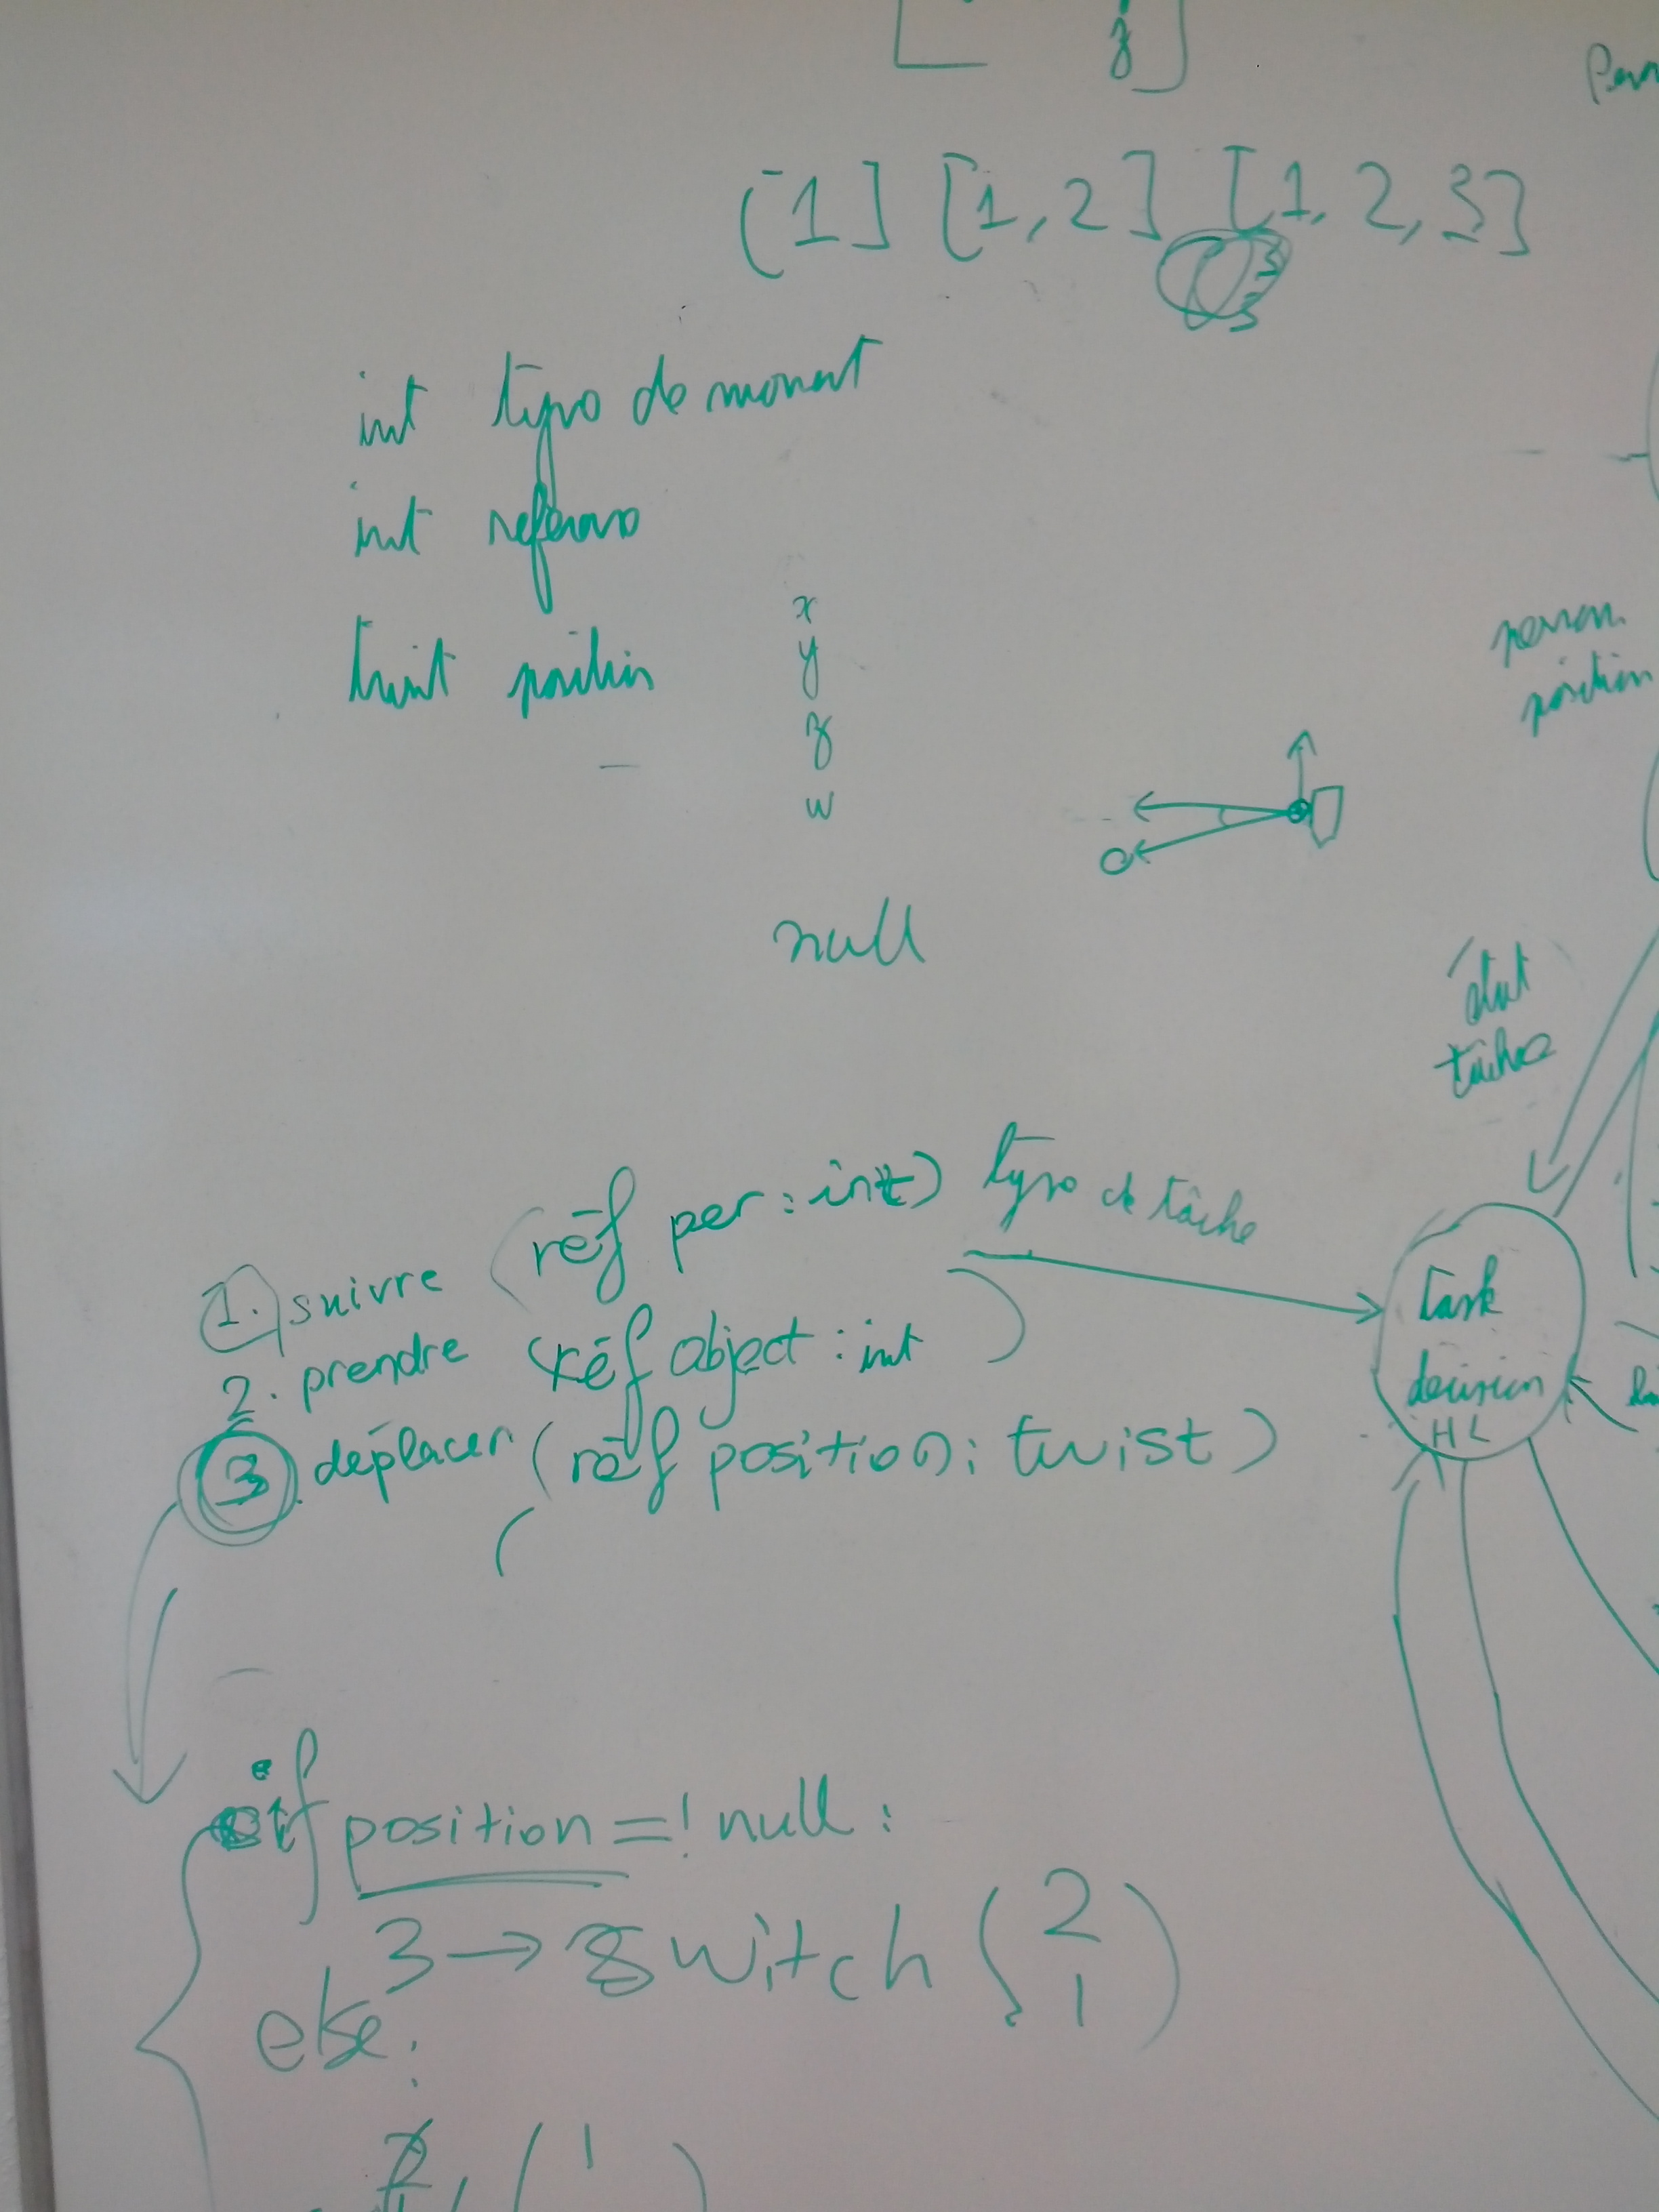 z
[1] [1, 2] [1, 2, 3]
3
3
int type de
int
twist position
x
y
z
w
position
null
état
tâche
1. suivre (réf per : int) type de tâche
2. prendre (réf object : int)
3. déplacer (réf position : twist)
task
decision
HL
if position =! null :
3 → switch (2
1)
else :
2 (1